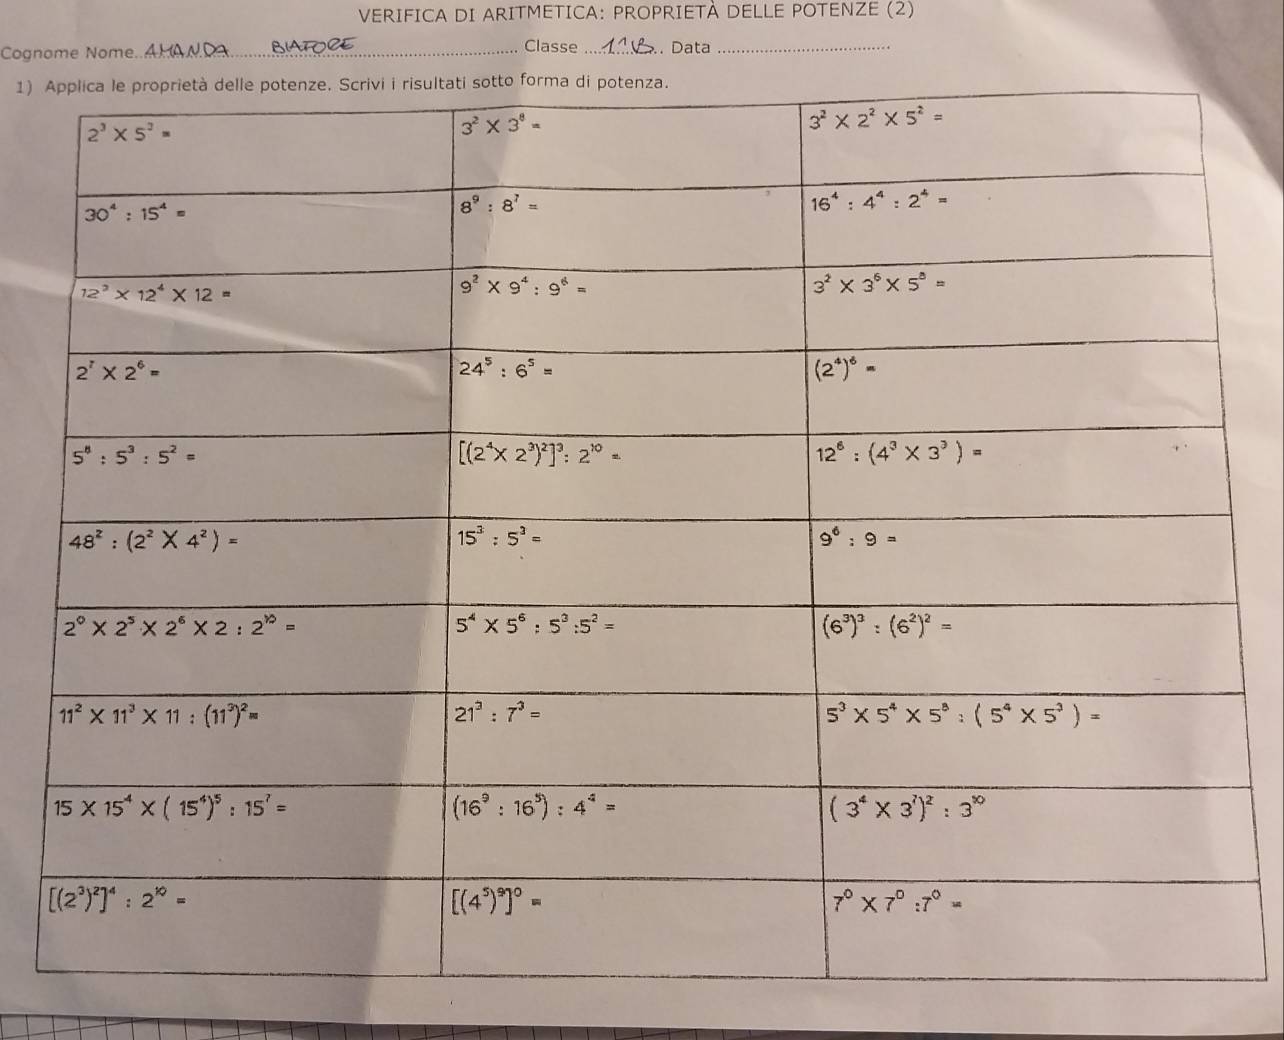 VERIFICA DI ARITMETICA: PROPRIETÀ DELLE POTENZE (2)
Cognome Nome. AMANDA BIAFORE Classe 1^B Data
1) Applica le proprietà delle potenze. Scrivi i risultati sotto forma di potenza.
2³ X 5³ = 3² X 3⁸ = 3² X 2² X 5² =
30⁴ : 15⁴ = 8⁹ : 8⁷ = 16⁴ : 4⁴ : 2⁴ =
12³ X 12⁴ X 12 = 9² X 9⁴ : 9⁶ = 3² X 3⁶ X 5⁸ =
2⁷ X 2⁶ = 24⁵ : 6⁵ = (2⁴)⁶ =
5⁸ : 5³ : 5² = [(2⁴X 2³)²]³: 2¹⁰ = 12⁶ : (4³ X 3³ ) =
48² : (2² X 4² ) = 15³ : 5³ = 9⁶ : 9 =
2⁰ X 2⁵ X 2⁶ X 2 : 2¹⁰ = 5⁴ X 5⁶ : 5³ :5² = (6³)³ : (6²)² =
11² X 11³ X 11 : (11³)²= 21³ : 7³ = 5³ X 5⁴ X 5⁸ : ( 5⁴ X 5³ ) =
15 X 15⁴ X ( 15⁴)⁵ : 15⁷ = (16⁹ : 16⁵) : 4⁴ = ( 3⁴ X 3⁷)² : 3¹⁰
[(2³)²]⁴ : 2¹⁰ = [(4⁵)⁹]⁰ = 7⁰ X 7⁰ :7⁰ =